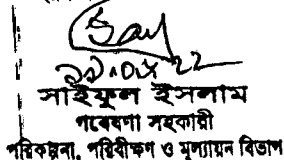 সাইফুল ইসলাম
গবেষণা সহকারী
পরিকল্পনা, পরিবীক্ষণ ও মূল্যায়ন বিভাগ